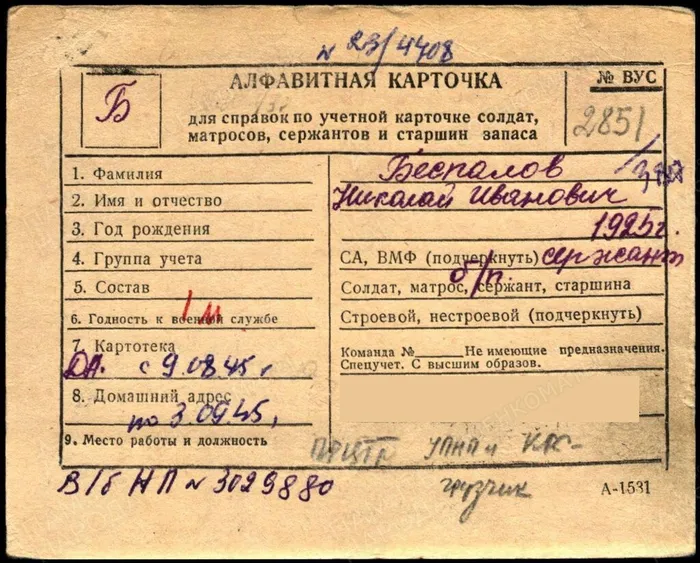 № 2В/4408
Б
АЛФАВИТНАЯ КАРТОЧКА
для справок по учетной карточке солдат,
матросов, сержантов и старшин запаса
№ ВУС
2851
1. Фамилия Беспалов
2. Имя и отчество Николай Иванович
3. Год рождения 1925г.
4. Группа учета СА, ВМФ (подчеркнуть) сержант
5. Состав Солдат, матрос, сержант, старшина
б/п.
6. Годность к военной службе Строевой, нестроевой (подчеркнуть)
7. Картотека Команда № Не имеющие предназначения.
Спецучет. С высшим образов.
ДА. с 9.08.45 г
8. Домашний адрес
по 3.09.45,
9. Место работы и должность
грузчик
В/б НП № 3029880
А-1531